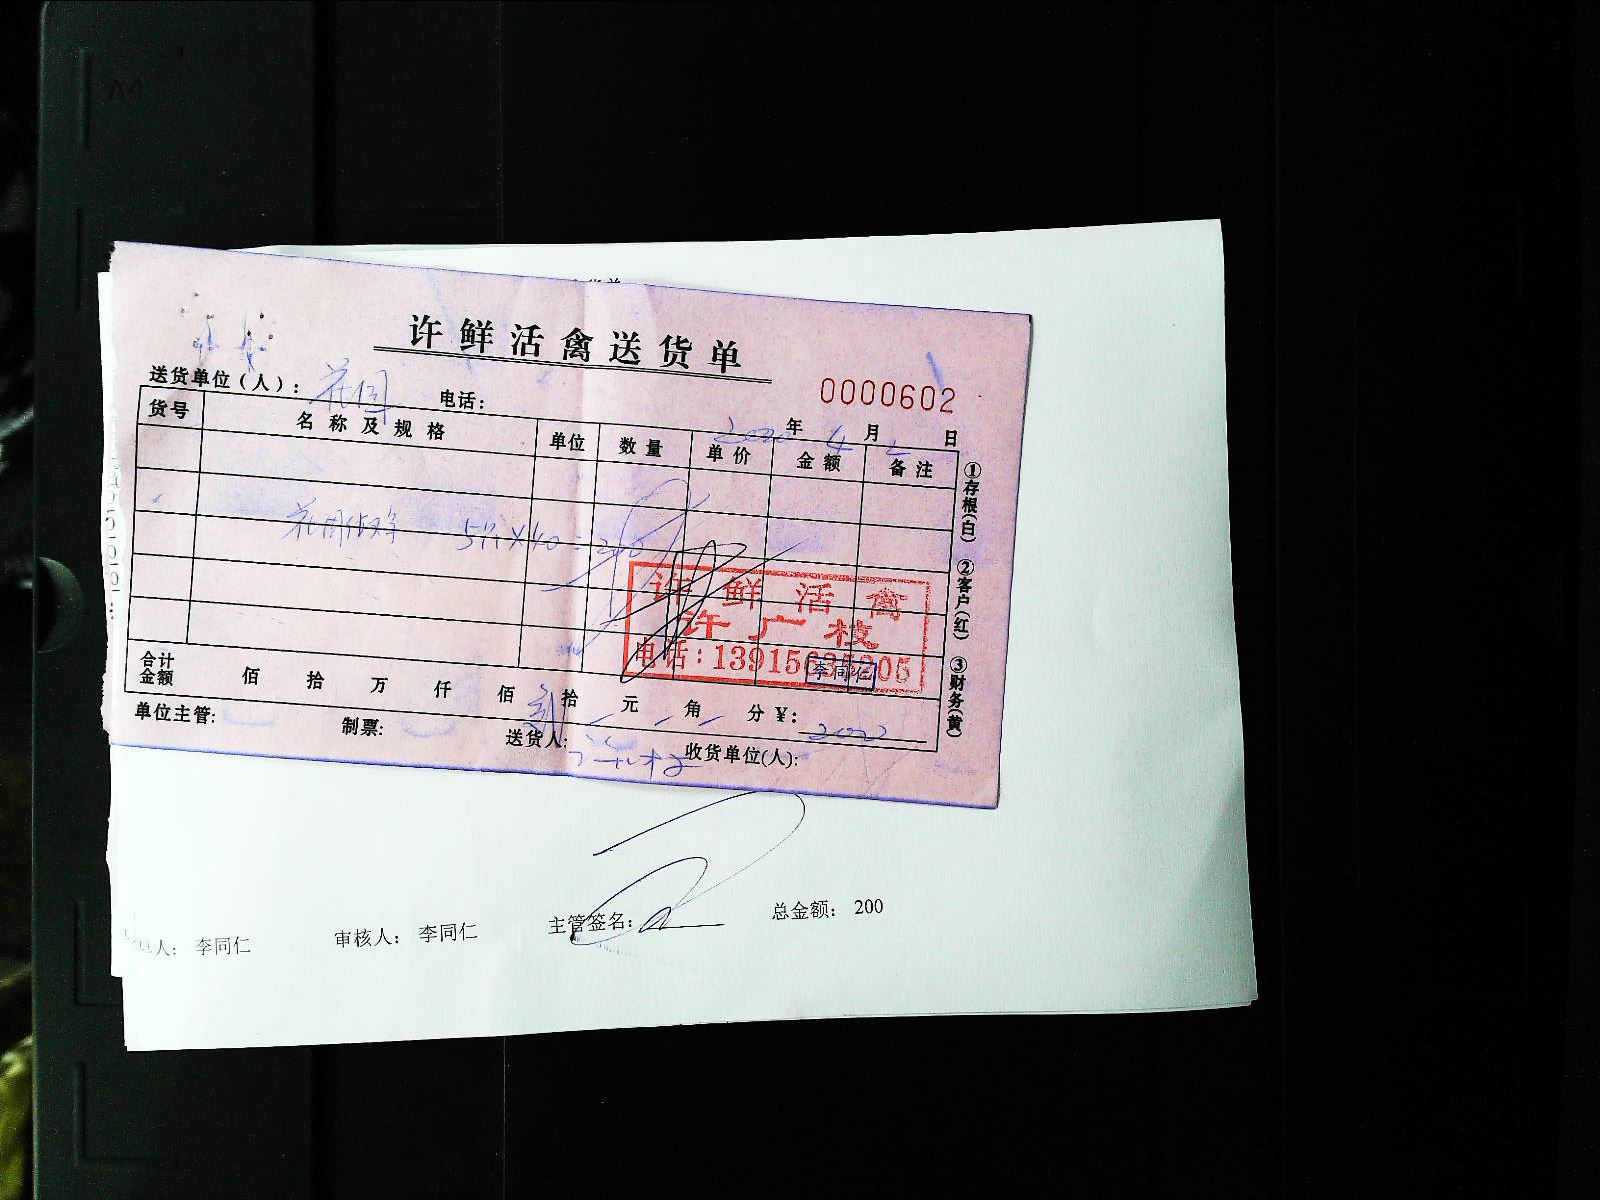 A4
许鲜活禽送货单
0000602
送货单位(人): 花园 电话:
2020 年 4 月 2 日
货号 名称及规格 单位 数量 单价 金额 备注
5只×40=200
许鲜活禽
许广枝
电话:13915635205
李同仁
合计金额 佰 拾 万 仟 佰 拾 元 角 分 ¥:
单位主管: 制票: 送货人: 收货单位(人):
①存根(白) ②客户(红) ③财务(黄)
人: 李同仁 审核人: 李同仁 主管签名: 总金额: 200